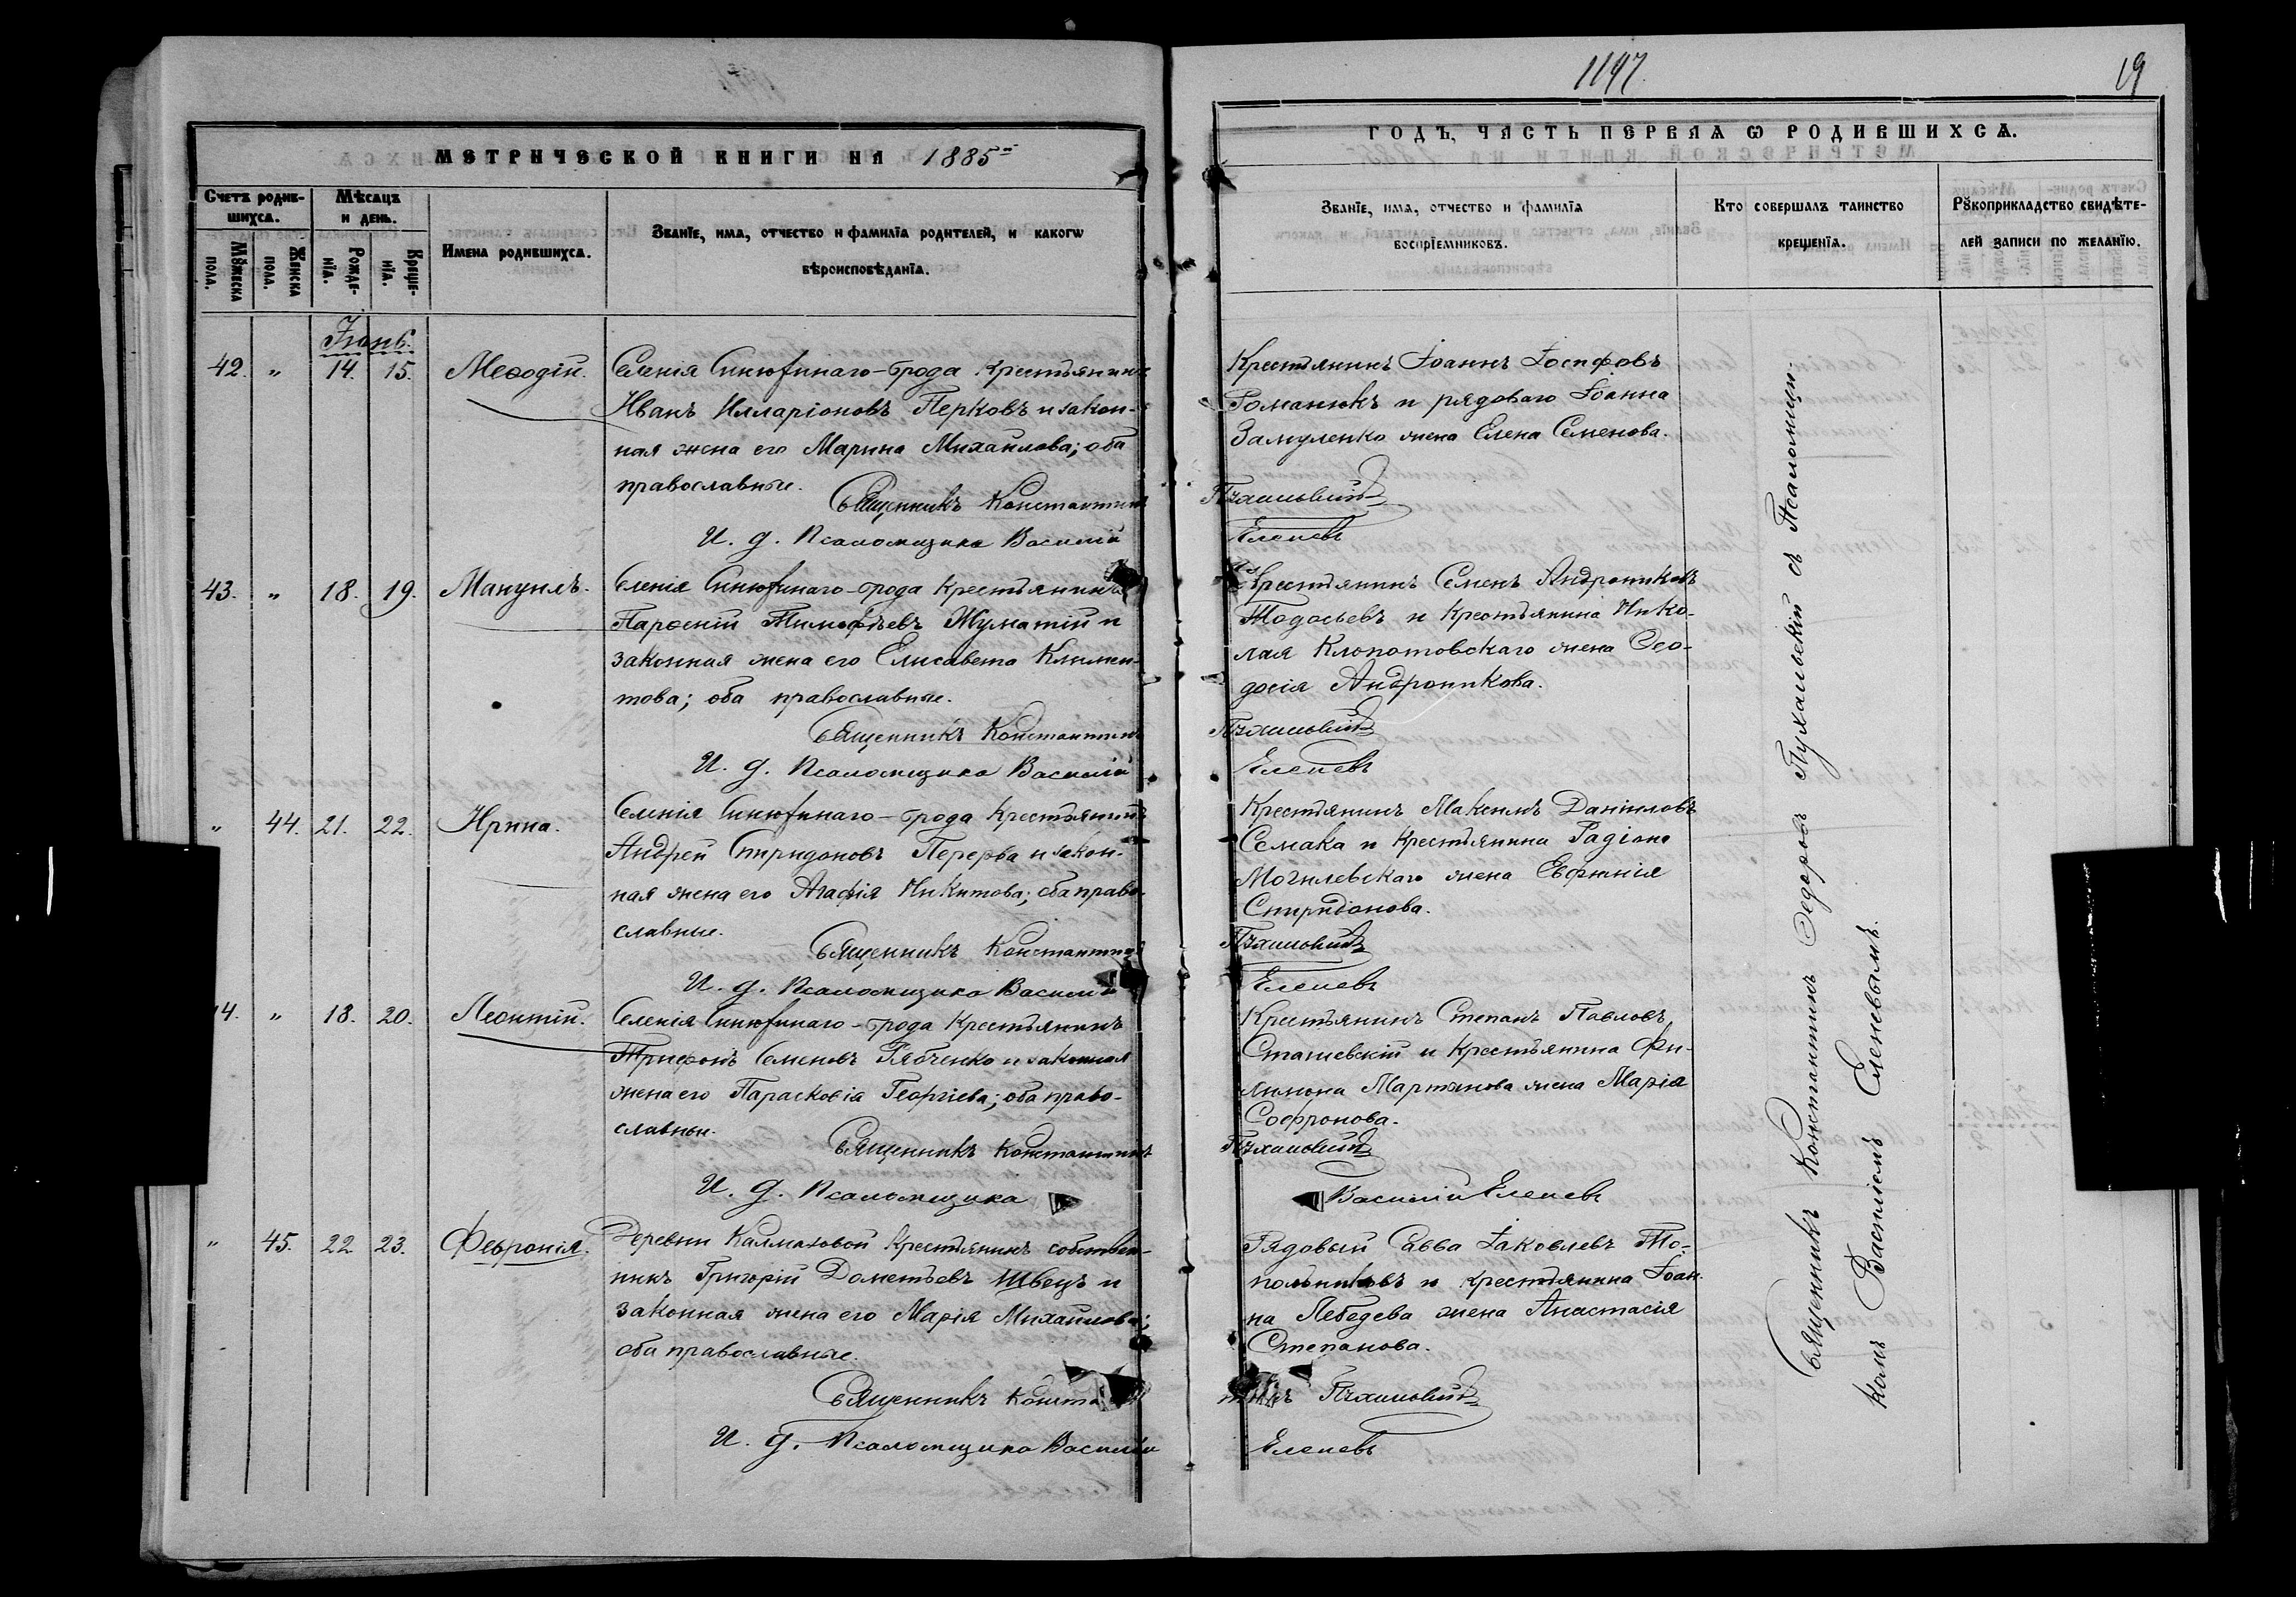 1197.
19
МЕТРИЧЕСКОЙ КНИГИ НА 1885й
ГОДЪ, ЧАСТЬ ПЕРВАЯ Ѡ РОДИВШИХСѦ.
Счетъ родив-
шихсѧ.
Мѣсѧцъ
и день.
Мꙋжеска
пола.
Женска
пола.
Рожде-
нїѧ.
Креще-
нїѧ.
Имена родившихсѧ.
Званїе, имѧ, отчество и фамилїѧ родителей, и какогѡ
вѣроисповѣданїѧ.
Званїе, имѧ, отчество и фамилїѧ
воспрїемниковъ.
Кто совершалъ таинство
крещенїѧ.
Рꙋкоприкладство свидѣте-
лей записи по желанїю.
Іюнь.
42. „ 14. 15. Меѳодій.
Селенія Синюхинаго-брода крестьянинъ
Иванъ Илларіоновъ Перковъ и закон-
ная жена его Марина Михаилова; оба
православные.
Священникъ Константинъ
И. д. Псаломщика Василій
Крестьянинъ Іоаннъ Іосифовъ
Романюкъ и рядоваго Іоанна
Замуленко жена Елена Семенова.
Пухальскій
Еленевъ
43. „ 18. 19. Мануилъ.
Селенія Синюхинаго-брода крестьянинъ
Парѳеній Тимоѳѣевъ Жуматій и
законная жена его Елисавета Климен-
това; оба православные.
Священникъ Константинъ
И. д. Псаломщика Василій
Крестьянинъ Семенъ Андрониковъ
Тодосьевъ и крестьянина Нико-
лая Клопотовскаго жена Ѳео-
досія Андроникова.
Пухальскій
Еленевъ
„ 44. 21. 22. Ирина.
Селенія Синюхинаго-брода крестьянинъ
Андрей Спиридоновъ Перерва и закон-
ная жена его Агафія Никитова; оба право-
славные.
Священникъ Константинъ
И. д. Псаломщика Василій
Крестьянинъ Максимъ Даніиловъ
Семака и крестьянина Радіона
Могилевскаго жена Евфимія
Спиридонова.
Пухальскій
Еленевъ
44. „ 18. 20. Леонтій.
Селенія Синюхинаго-брода крестьянинъ
Трифонъ Семеновъ Рябченко и законная
жена его Парасковія Георгіева; оба право-
славны.
Священникъ Константинъ
И. д. Псаломщика
Крестьянинъ Степанъ Павловъ
Сташевскій и крестьянина Фи-
лимона Мартынова жена Марія
Софронова.
Пухальскій
Василій Еленевъ
„ 45. 22 23. Февронія.
Деревни Калмазовой крестьянинъ собствен-
никъ Григорій Дометьевъ Швецъ и
законная жена его Марія Михаилова;
оба православные.
Священникъ Конста
И. д. Псаломщика Василій
Рядовый Савва Іаковлевъ То-
польниковъ и крестьянина Іоан-
на Лебедева жена Анастасія
Степанова.
тинъ Пухальскій
Еленевъ
Священникъ Константинъ Ѳедоровъ Пухальскій съ Псаломщи-
комъ Василіемъ Еленевымъ.